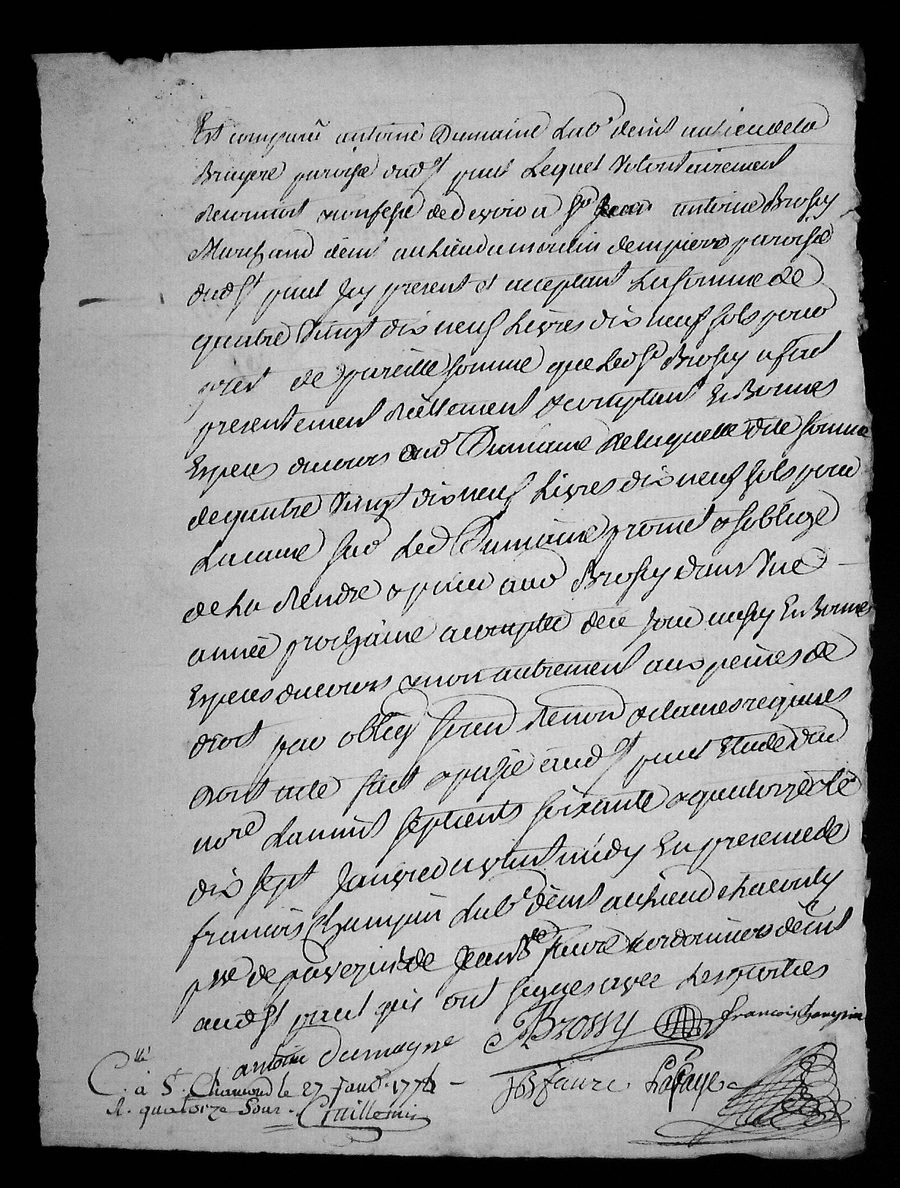 Est comparu antoine Dumaine Lab.r dem.t au lieu de la
Bruyere paroisse dud St paul Lequel volontairement
Reconnait & confesse de devoir a Sr Jean antoine Brossy
Marchand dem.t au lieu du moulin paroisse
dud St paul Icy present et acceptant La somme de
quatre vingt dix neuf Livres dix neuf sols pour
prest de pareille somme que Led Sr Brossy a fait
presentement Reellement & comptant En Bonnes
Especes du cours aud Dumaine De laquelle dite somme
de quatre vingt dix neuf Livres dix neuf sols pour
La cause sus Led Dumaine promet & s'oblige
de La Rendre & payer aud Brossy dans Une
année prochaine a compter de ce jour aussy En Bonnes
Especes du cours & non autrement aux peines de
droit par oblig
dont acte fait & passé aud St paul Etude dud
nore L'an mil sept cents soixante & quatorze & le
dix sept Janvier avant midy En presence de
francois Champin Lab.r dem.t au lieu de
psse de & de Jean Faure cordonniers dem.t
aud St paul qui ont signes avec Les parties
antoine dumayne JABrossy francois champin
C.llé à St. Chamond le 27 Janv.r 1774 Jos faure Lafaye
R. quatorze sous. Guillemin